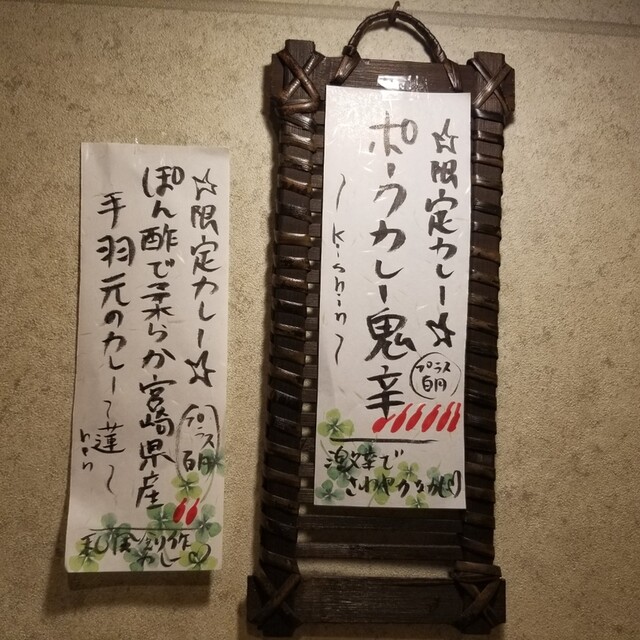 ☆限定カレー☆
プラス百円
ポークカレー鬼辛
～kishin～
激辛で
さわやかな香り
☆限定カレー☆
プラス百円
ぽん酢で柔らか宮崎県産
手羽元のカレー～蓮～
hen
和風創作